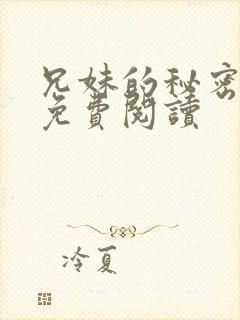 兄妹的秘密
免費閱讀
冷夏